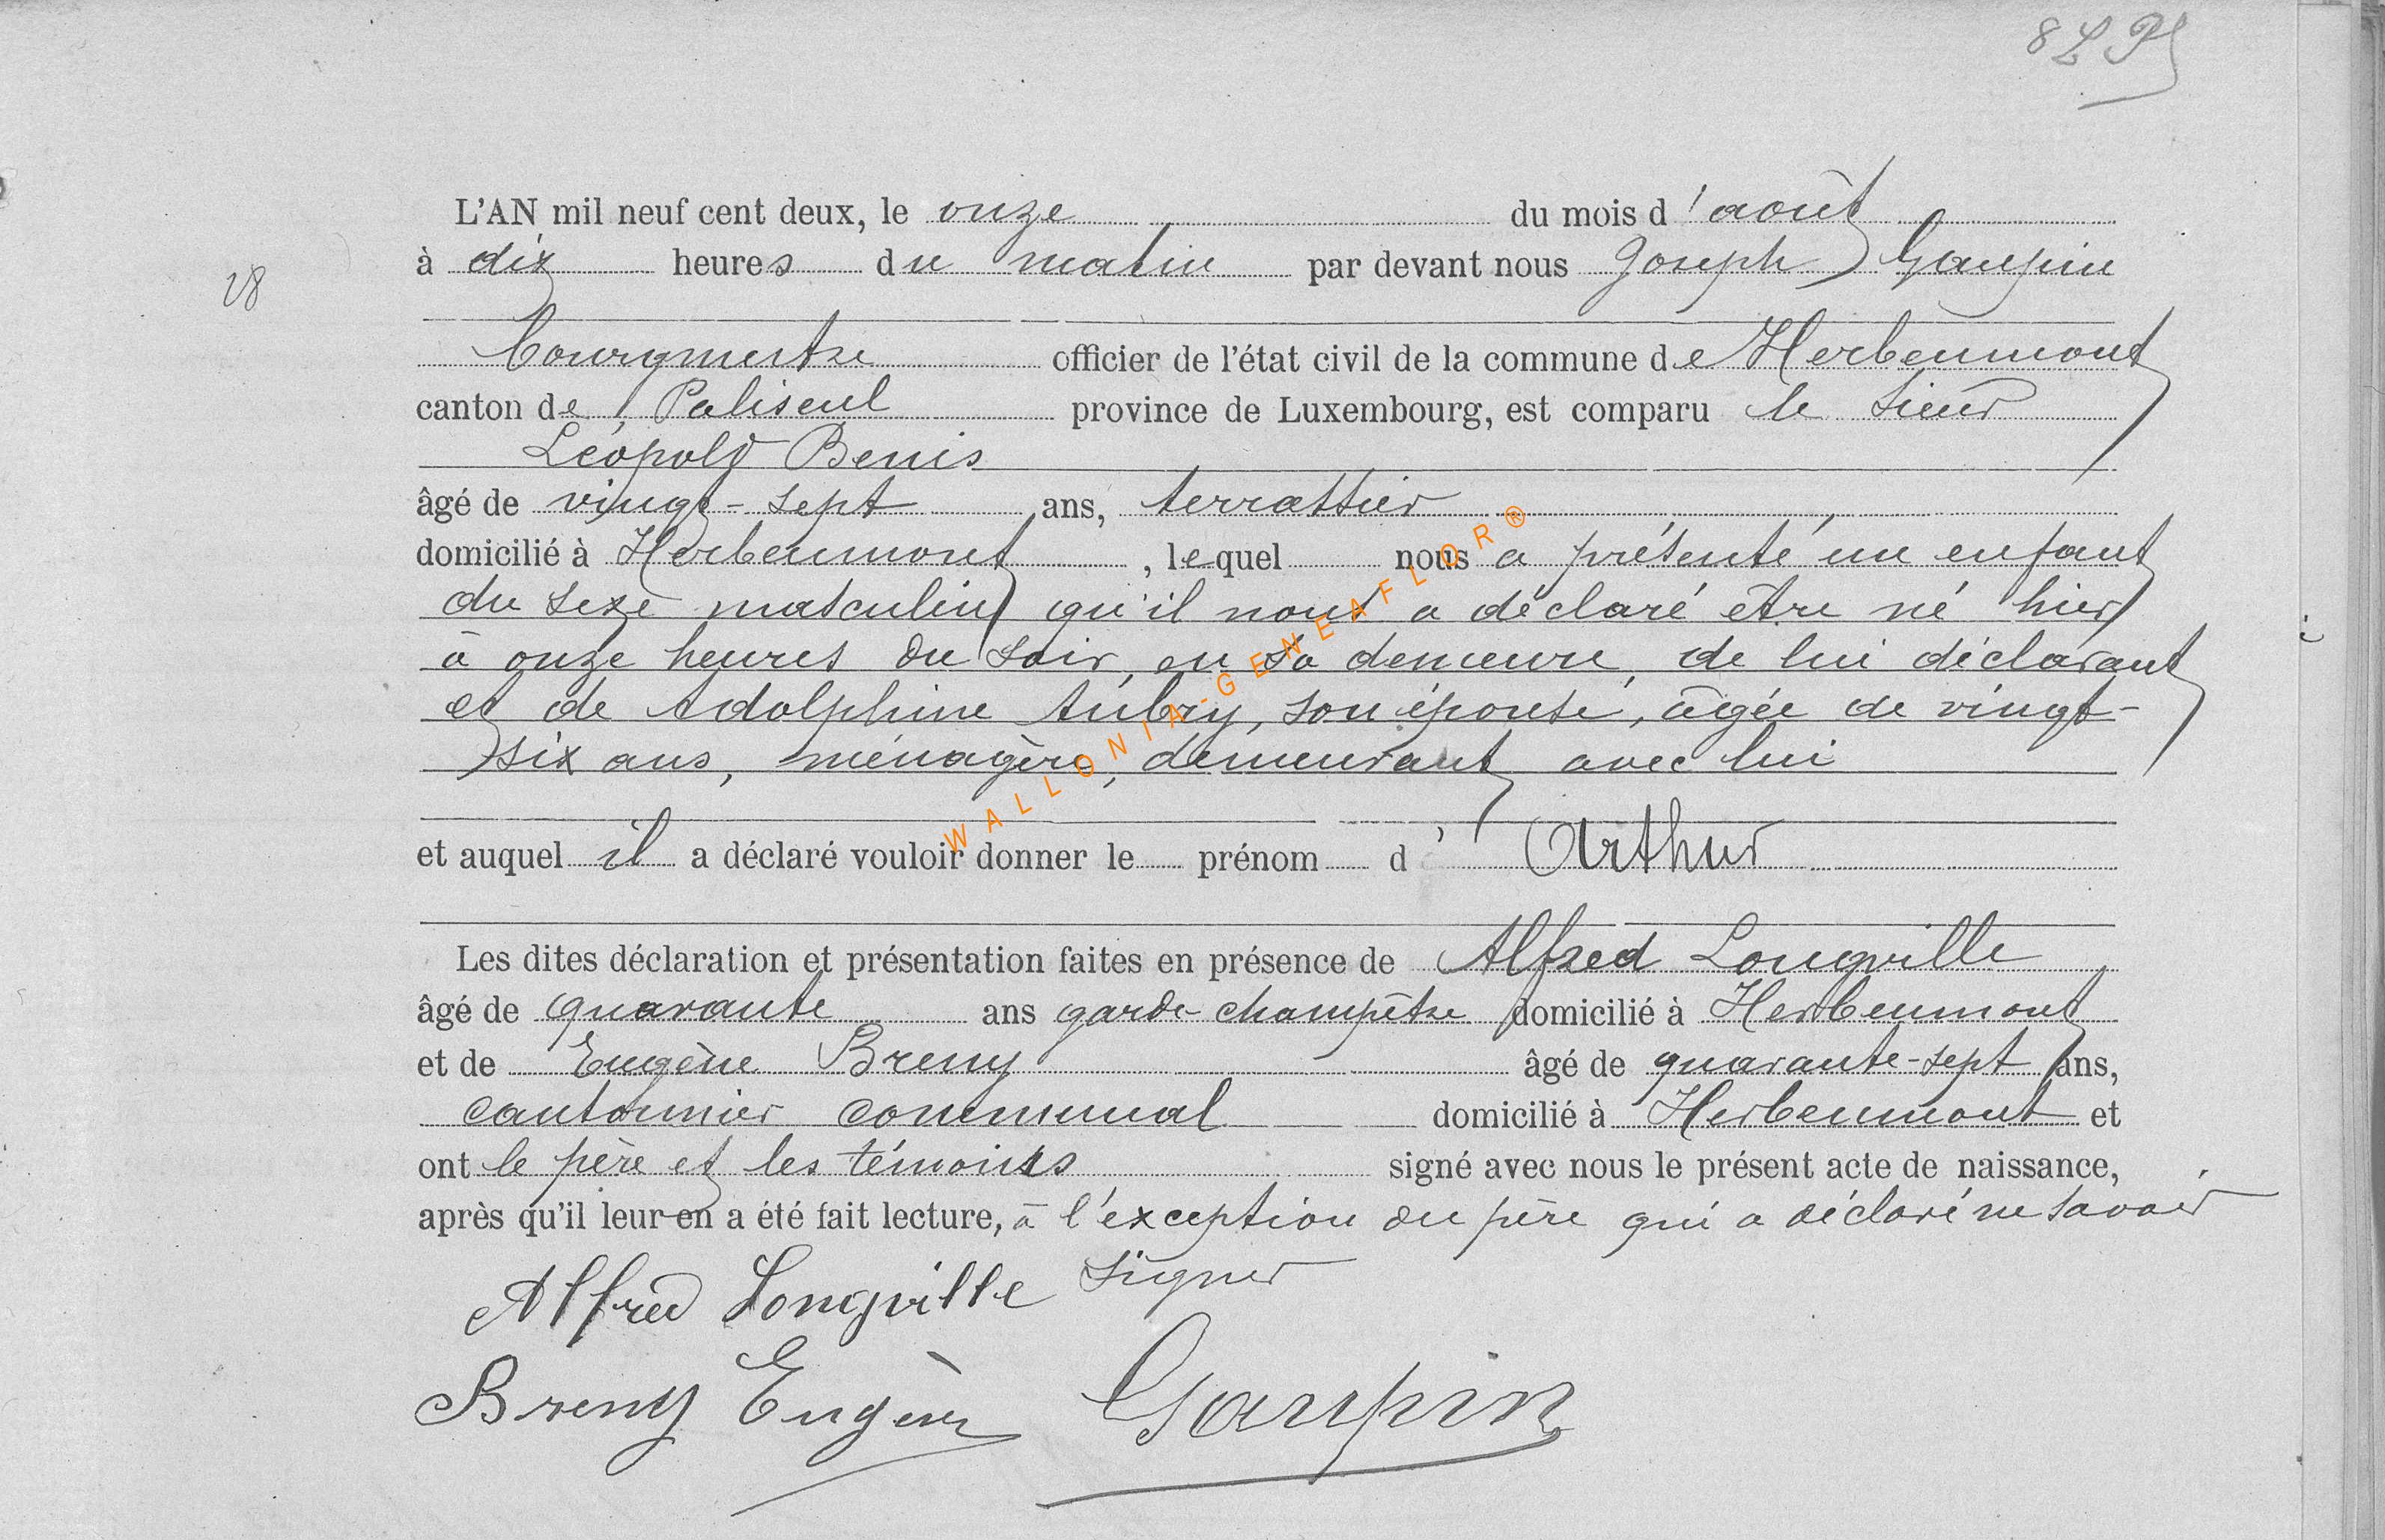 L'AN mil neuf cent deux, le onze du mois d'août
à dix heures du matin par devant nous Joseph Gaupin
28
bourgmestre officier de l'état civil de la commune de Herbeumont
canton de Paliseul province de Luxembourg, est comparu le sieur
Léopold Benis
âgé de vingt-sept ans, terrassier
domicilié à Herbeumont, lequel nous a présenté un enfant
du sexe masculin qu'il nous a déclaré être né hier
à onze heures du soir, en sa demeure, de lui déclarant
et de Adolphine Aubry, son épouse, âgée de vingt-
six ans, ménagère, demeurant avec lui
WALLONIA-GENEAFLOR®
et auquel il a déclaré vouloir donner le prénom d'Arthur
Les dites déclaration et présentation faites en présence de Alfred Longville
âgé de quarante ans garde champêtre domicilié à Herbeumont
et de Eugène Breny âgé de quarante-sept ans,
cantonnier communal domicilié à Herbeumont et
ont le père et les témoins signé avec nous le présent acte de naissance,
après qu'il leur en a été fait lecture, à l'exception du père qui a déclaré ne savoir
signer
Alfred Longville
Breny Eugène Gaupin